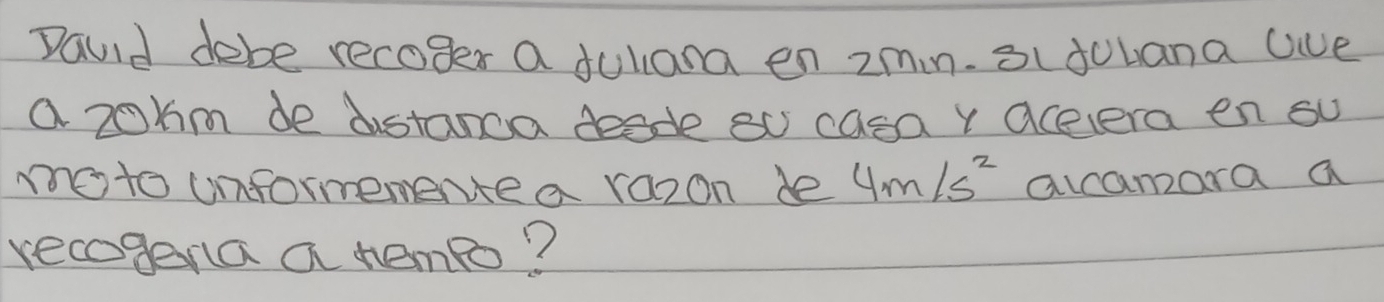 David debe recoger a Juliana en 2min. Si Juliana vive
a 20km de distancia desde su casa y acelera en su
moto uniformemente a razon de 4m/s² alcanzara a
recogerla a tiempo?